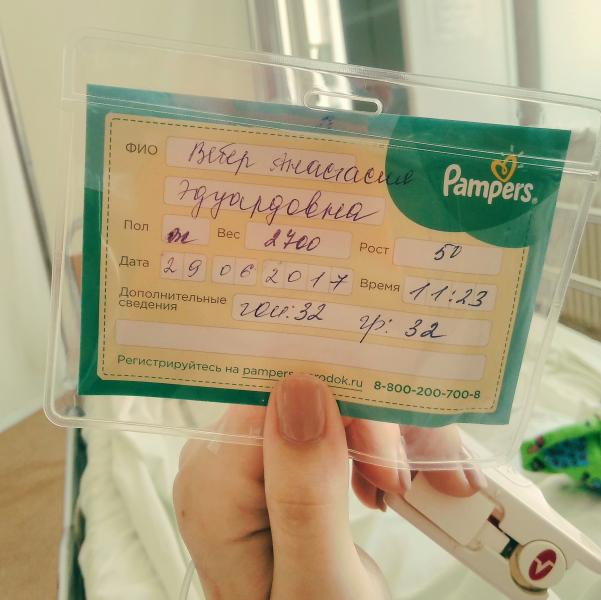 ФИО Вебер Анастасия
Pampers®
Эдуардовна
Пол ж Вес 2700 Рост 50
Дата 29 06 2017 Время 11:23
Дополнительные сведения гол: 32 гр: 32
Регистрируйтесь на pampers rodok.ru 8-800-200-700-8